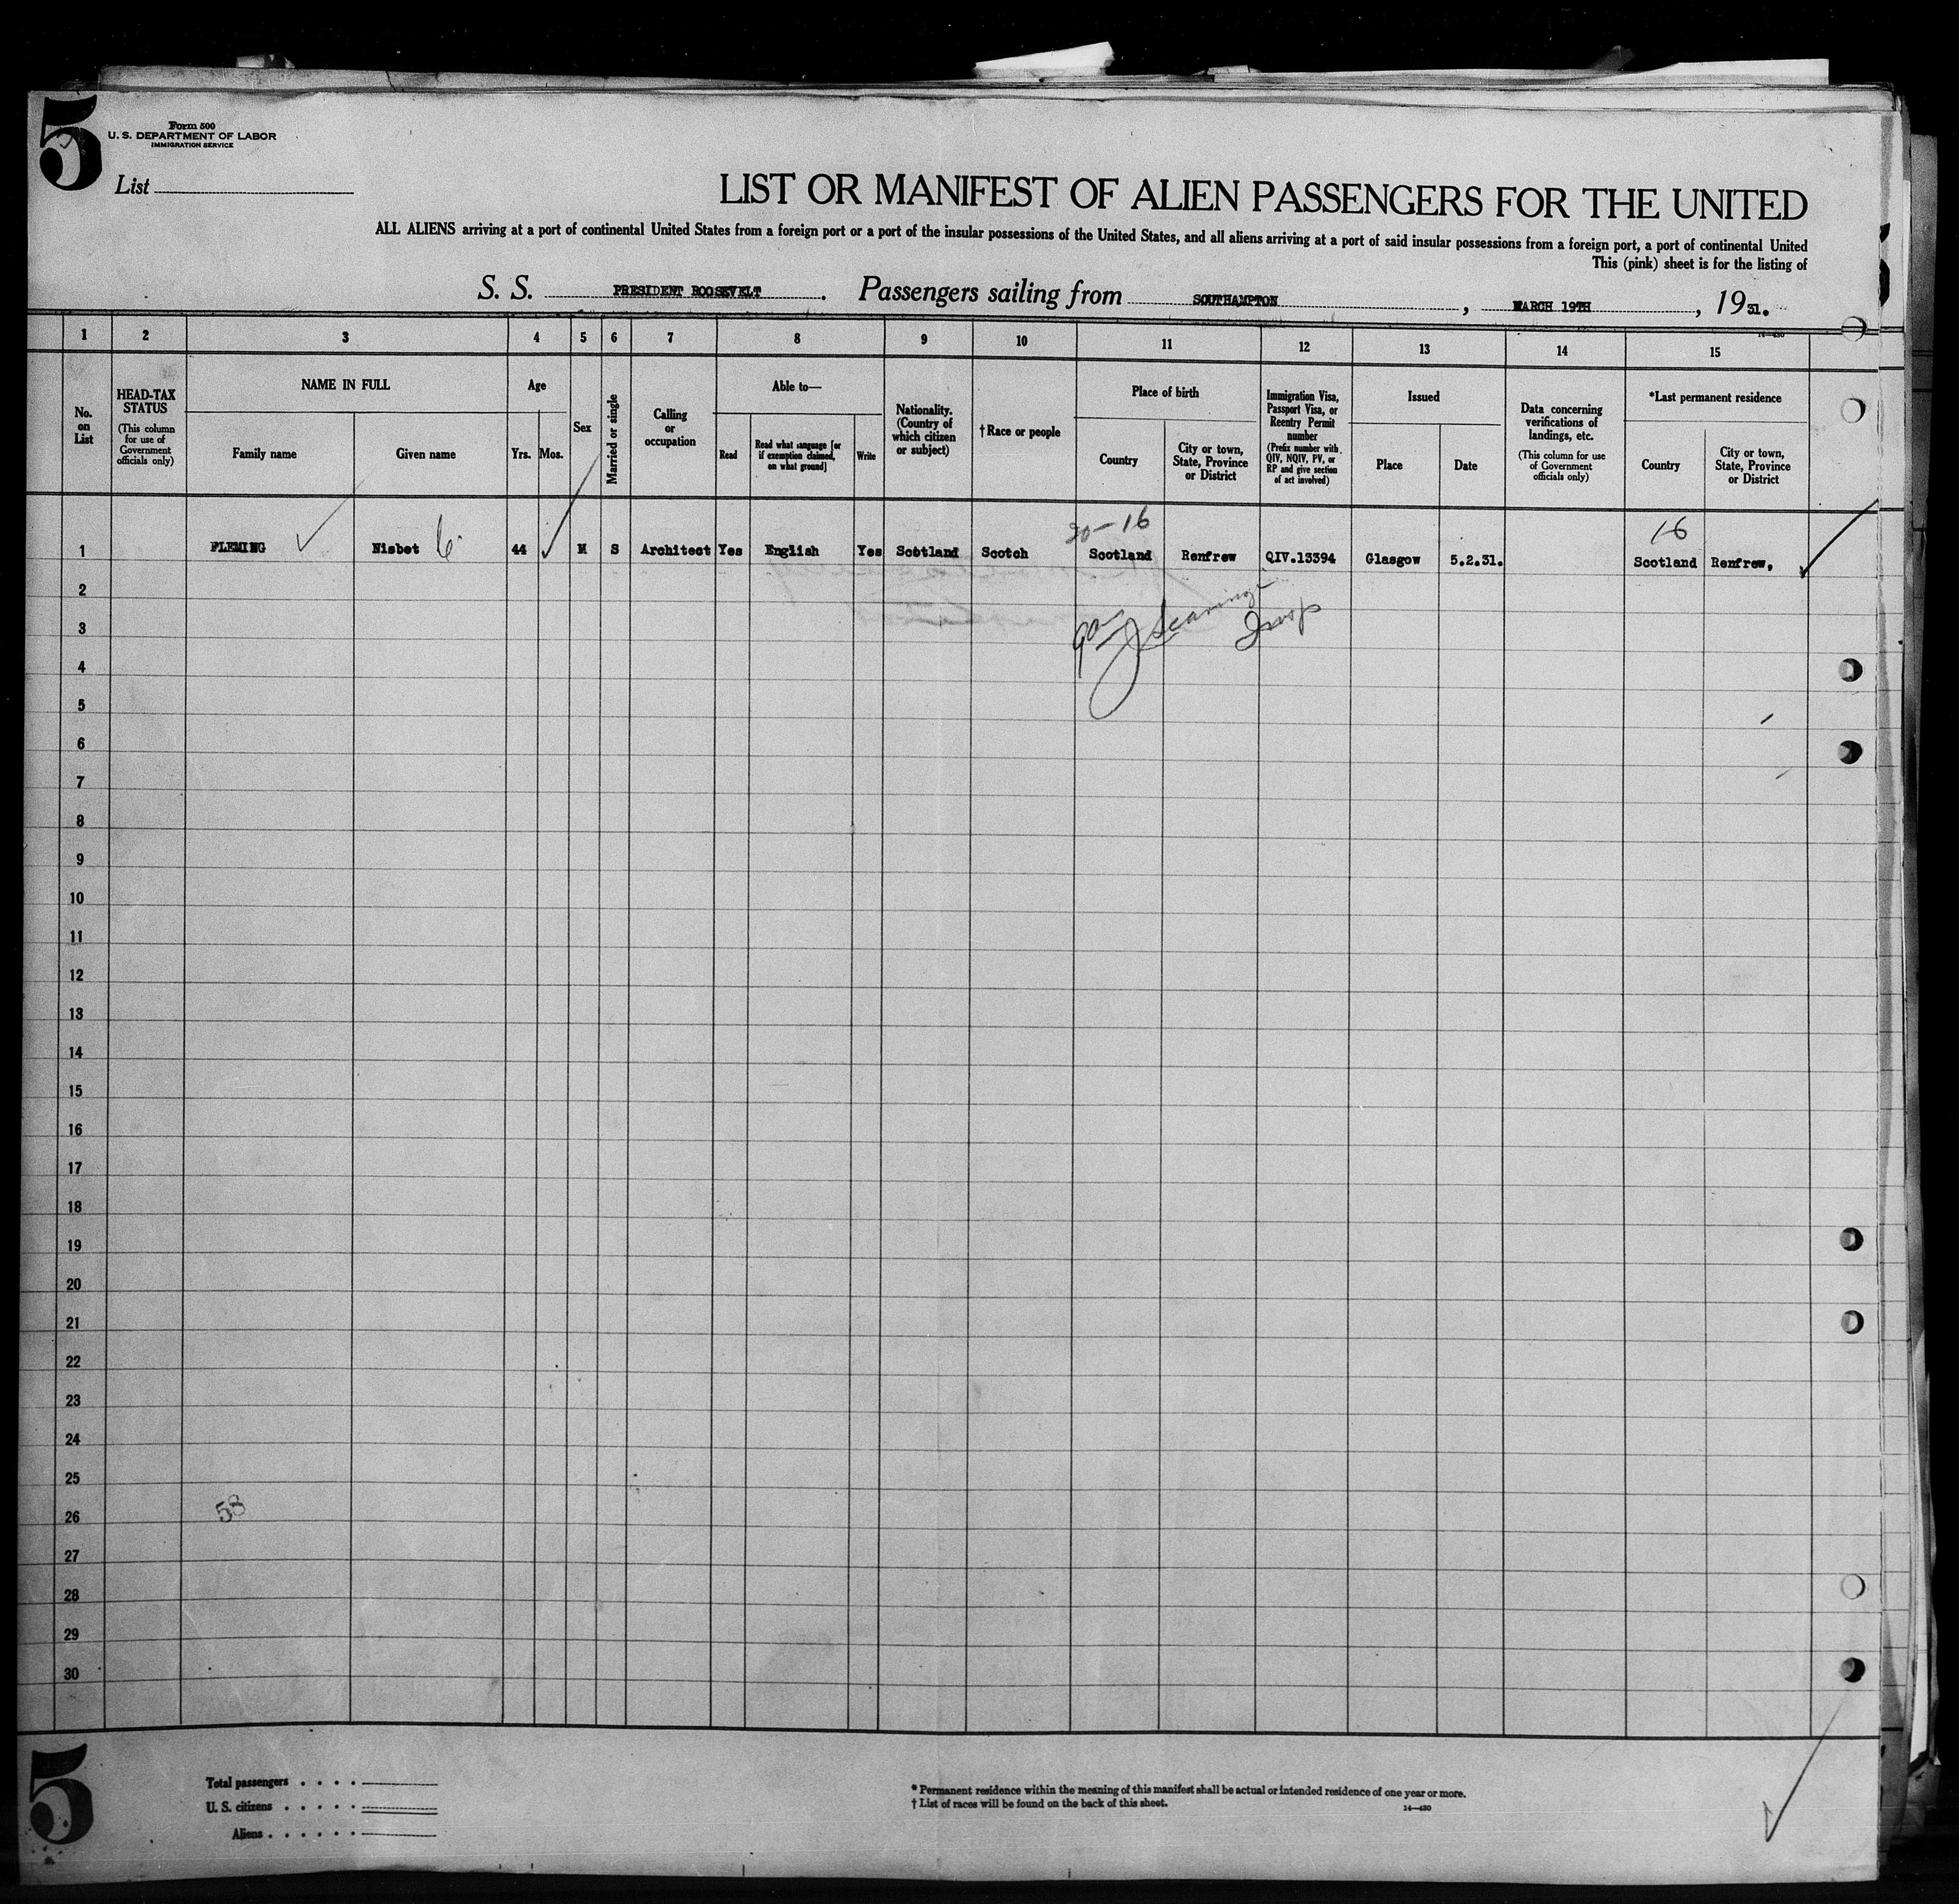 5
Form 500
U. S. DEPARTMENT OF LABOR
IMMIGRATION SERVICE
List
LIST OR MANIFEST OF ALIEN PASSENGERS FOR THE UNITED
ALL ALIENS arriving at a port of continental United States from a foreign port or a port of the insular possessions of the United States, and all aliens arriving at a port of said insular possessions from a foreign port, a port of continental United
This (pink) sheet is for the listing of
S. S. PRESIDENT ROOSEVELT. Passengers sailing from SOUTHAMPTON, MARCH 19TH, 1931.
14—430
1 2 3 4 5 6 7 8 9 10 11 12 13 14 15
No. on List
HEAD-TAX STATUS (This column for use of Government officials only)
NAME IN FULL
Family name
Given name
Age
Yrs. Mos.
Sex
Married or single
Calling or occupation
Able to—
Read
Read what language [or if exemption claimed, on what ground]
Write
Nationality. (Country of which citizen or subject)
†Race or people
Place of birth
Country
City or town, State, Province or District
Immigration Visa, Passport Visa, or Reentry Permit number (Prefix number with QIV, NQIV, PV, or RP and give section of act involved)
Issued
Place
Date
Data concerning verifications of landings, etc. (This column for use of Government officials only)
*Last permanent residence
Country
City or town, State, Province or District
20-16 16
1 FLEMING Nisbet 44 M S Architect Yes English Yes Scotland Scotch Scotland Renfrew QIV.13394 Glasgow 5.2.31. Scotland Renfrew,
2
3
4
5
6
7
8
9
10
11
12
13
14
15
16
17
18
19
20
21
22
23
24
25
26 58
27
28
29
30
5
Total passengers . . . .
U. S. citizens . . . . .
Aliens . . . . . .
* Permanent residence within the meaning of this manifest shall be actual or intended residence of one year or more.
† List of races will be found on the back of this sheet.
14—430